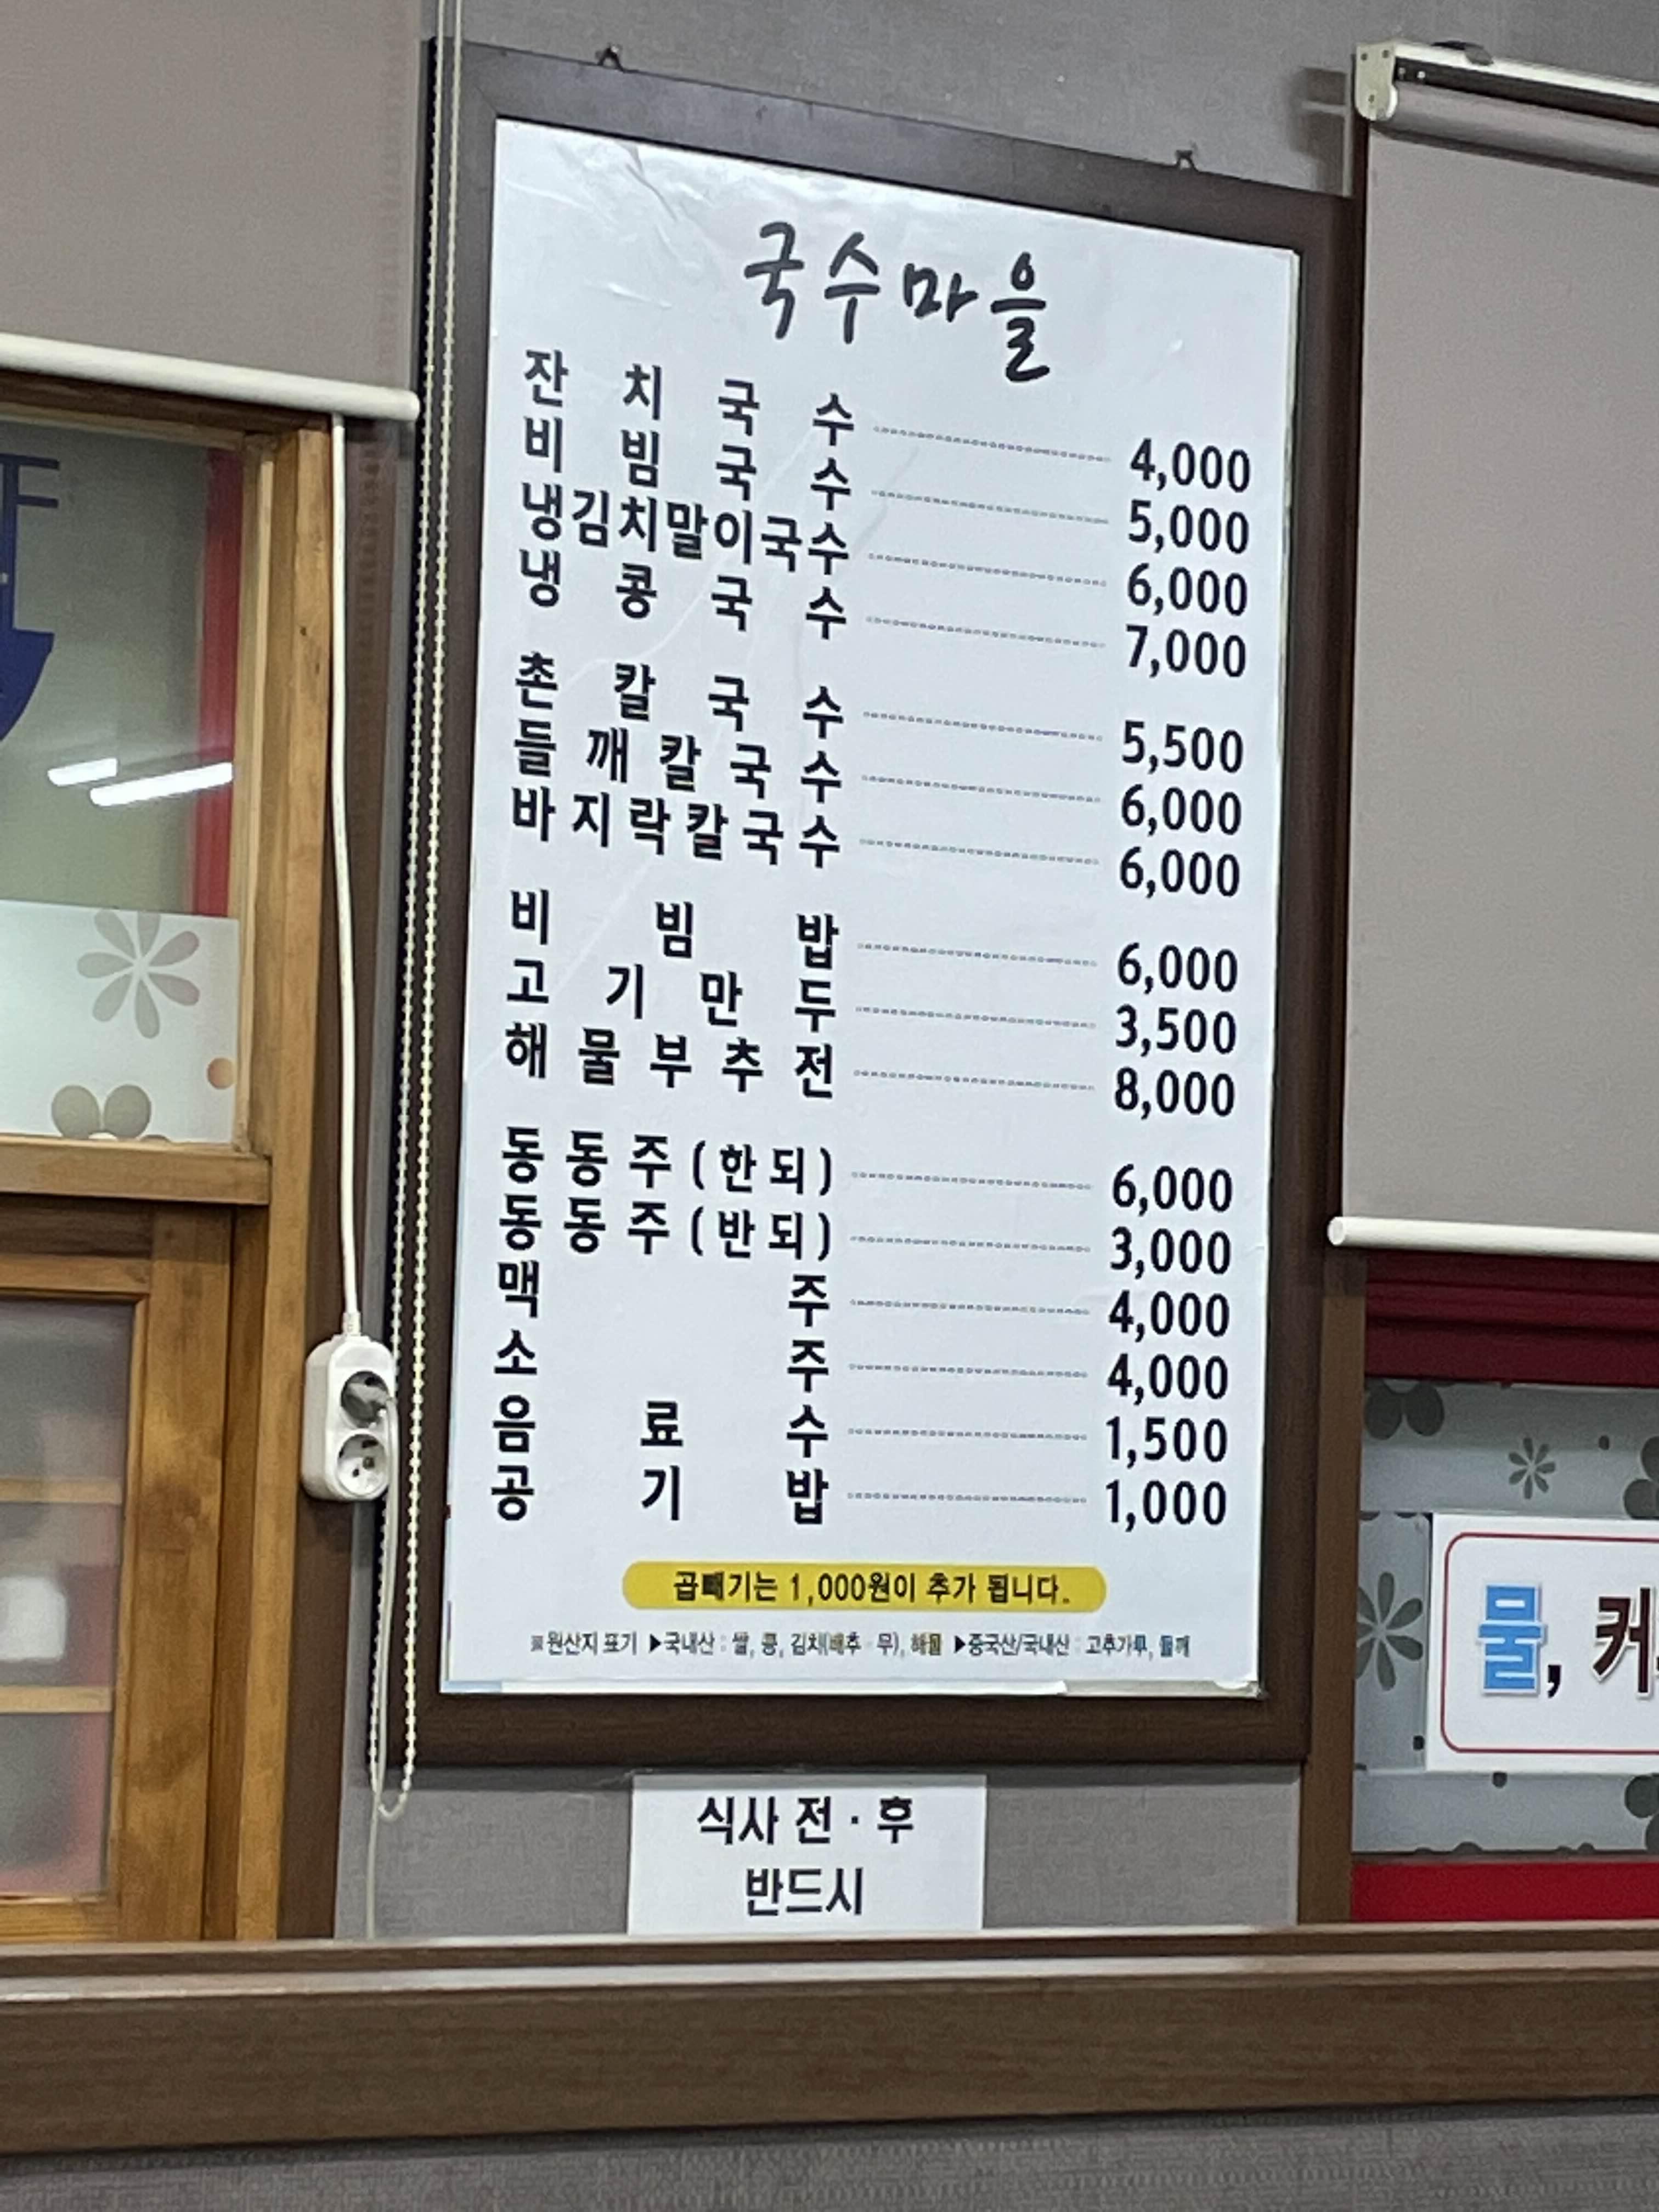 국수마을
잔치국수 4,000
비빔국수 5,000
냉김치말이국수 6,000
냉콩국수 7,000
촌칼국수 5,500
들깨칼국수 6,000
바지락칼국수 6,000
비빔밥 6,000
고기만두 3,500
해물부추전 8,000
동동주(한되) 6,000
동동주(반되) 3,000
맥주 4,000
소주 4,000
음료수 1,500
공기밥 1,000
곱빼기는 1,000원이 추가 됩니다.
※원산지 표기 ▶국내산 : 쌀, 콩, 김치(배추 · 무), 해물 ▶중국산/국내산 : 고추가루, 들깨
식사 전 · 후
반드시
물, 커